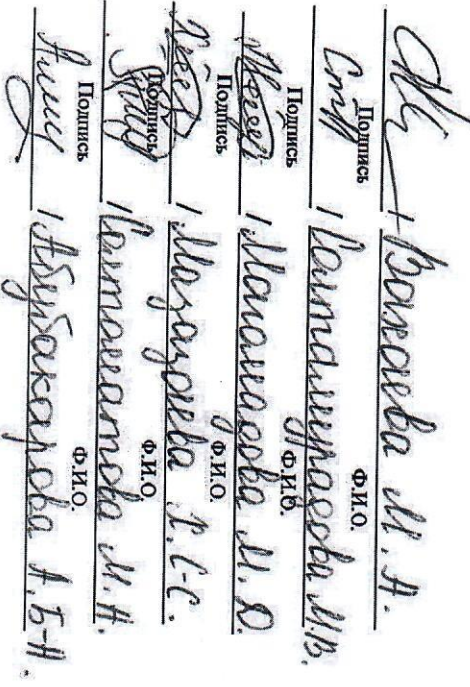 / Вахаева М. А.
Подпись Ф.И.О.
/ Солтамурадова М.В.
Подпись Ф.И.О.
/ Магомадова М. Д.
Подпись Ф.И.О.
/ Мазазаева Х. С-С.
Подпись Ф.И.О.
/ Солтаматова М. Н.
Подпись Ф.И.О.
/ Абубакарова А. Б-А.